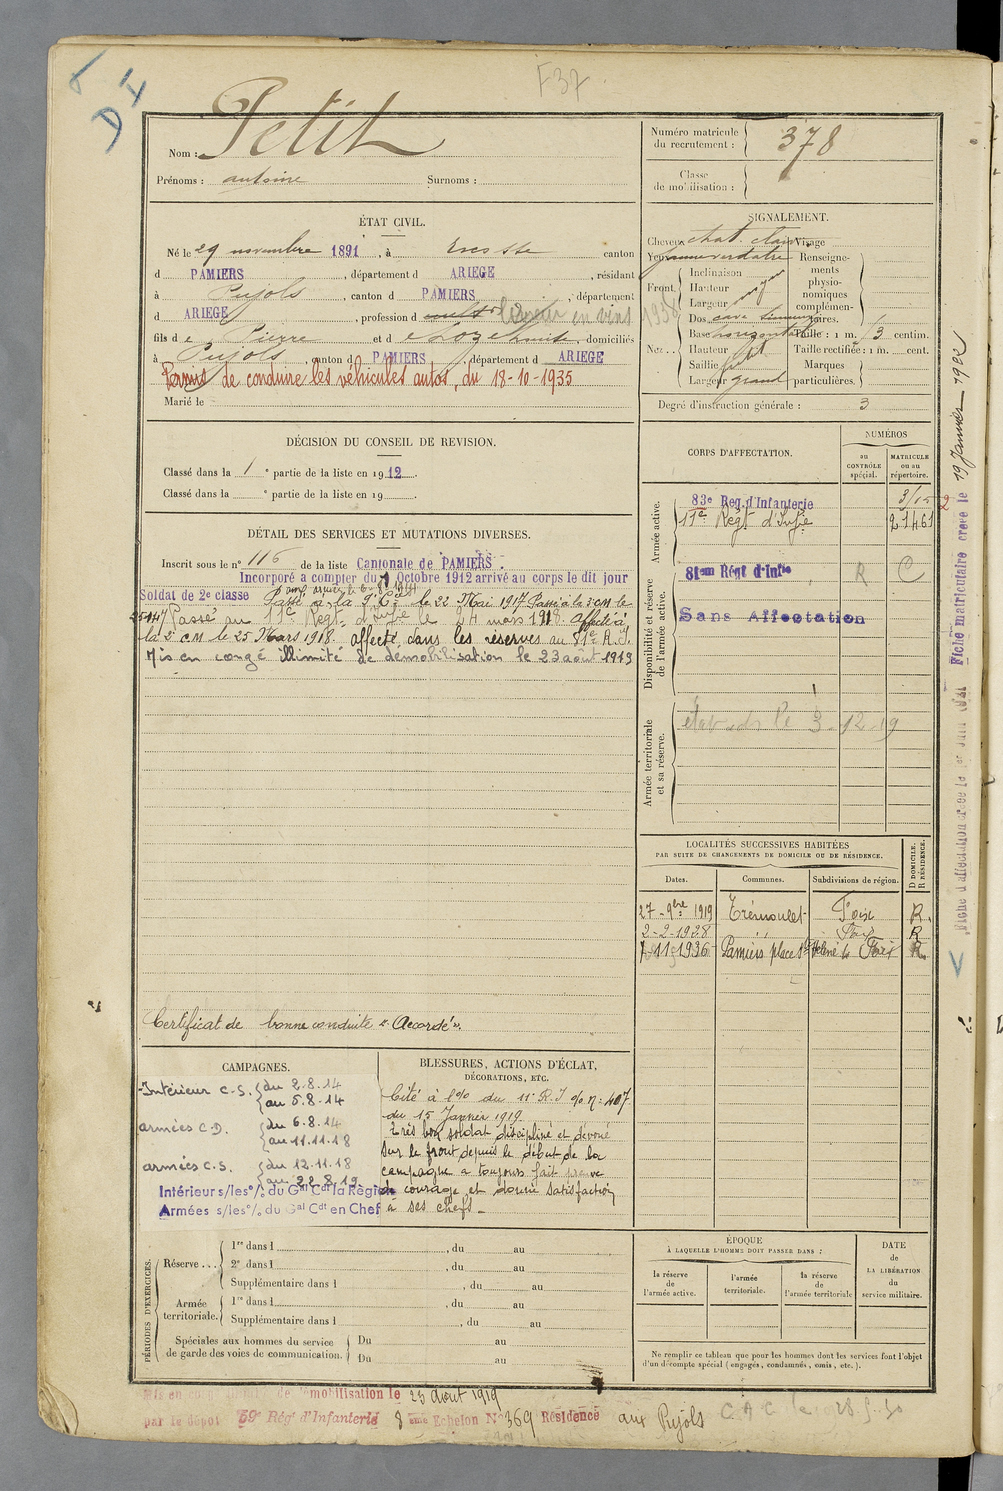 F37
D I
Nom : Petit
Prénoms : antoine Surnoms :
Numéro matricule du recrutement : 378
Classe de mobilisation :
ÉTAT CIVIL.
Né le 29 novembre 1891, à canton
d PAMIERS, département d ARIEGE, résidant
à Pujols, canton d PAMIERS, département
d ARIEGE, profession d en vins
fils de Pierre et de Louise, domiciliés
à Pujols, canton d PAMIERS, département d ARIEGE
Permis de conduire les véhicules autos, du 18-10-1935
Marié le
SIGNALEMENT.
Cheveux chat. clair Visage
Yeux jaune verdatre Renseigne-
ments
physio-
nomiques
complémen-
taires.
Front. Inclinaison
Hauteur moyen
Largeur
Nez.. Dos cave
Base horizontale Taille : 1 m. 73 centim.
Hauteur petit Taille rectifiée : 1 m. cent.
Saillie Marques
Largeur grand particulières.
Degré d'instruction générale : 3
DÉCISION DU CONSEIL DE REVISION.
Classé dans la 1e partie de la liste en 1912.
Classé dans la e partie de la liste en 19 .
DÉTAIL DES SERVICES ET MUTATIONS DIVERSES.
Inscrit sous le n° 116 de la liste Cantonale de PAMIERS.
Incorporé a compter du 9 Octobre 1912 arrivé au corps le dit jour
Soldat de 2e classe
Passé à la 9e Cie le 22 Mai 1917 Passé à la 3e CM le
Passé au 11e Regt d'Infie le 24 mars 1918. Affecté à
la 2e CM le 25 Mars 1918. affecté dans les réserves au R.I.
Mis en congé illimité de démobilisation le 23 août 1919
Certificat de bonne conduite "Accordé".
CORPS D'AFFECTATION.
NUMÉROS
au CONTRÔLE spécial.
MATRICULE ou au répertoire.
Armée active.
83e Reg. d'Infanterie
11e Régt d'Infie 21461
Disponibilité et réserve de l'armée active.
Régt d'Infie R C
Sans Affectation
Armée territoriale et sa réserve.
le 3-12-19
LOCALITÉS SUCCESSIVES HABITÉES
PAR SUITE DE CHANGEMENTS DE DOMICILE OU DE RÉSIDENCE.
Dates. Communes. Subdivisions de région. D DOMICILE. R RÉSIDENCE.
27-9bre 1919 Trémoulet Foix R.
2-2-1928 " Foix R
7-11-1936 Pamiers place Ste Hélène Foix R.
CAMPAGNES.
Intérieur C.S. du 2.8.14
au 5.8.14
armées C.D. du 6.8.14
au 11.11.18
armées C.S. du 12.11.18
au 22.8.19
Intérieur s/les°/. du Gal Cdt la Région
Armées s/les°/. du Gal Cdt en Chef
BLESSURES, ACTIONS D'ÉCLAT,
DÉCORATIONS, ETC.
Cité à l'o/o du 11e R.I o/o n: 407
du 15 Janvier 1919
Très bon soldat discipliné et dévoué
sur le front depuis le début de la
campagne a toujours fait preuve
de courage et donné satisfaction
à ses chefs
PÉRIODES D'EXERCICES.
Réserve... 1re dans l , du au
2e dans l , du au
Supplémentaire dans l , du au
Armée territoriale. 1re dans l , du au
Supplémentaire dans l , du au
Spéciales aux hommes du service de garde des voies de communication. Du au
Du au
ÉPOQUE
À LAQUELLE L'HOMME DOIT PASSER DANS :
la réserve de l'armée active.
l'armée territoriale.
la réserve de l'armée territoriale
DATE de LA LIBÉRATION du service militaire.
Ne remplir ce tableau que pour les hommes dont les services font l'objet
d'un décompte spécial (engagés, condamnés, omis, etc.).
Mis en congé de démobilisation le 23 Aout 1919
par le dépôt 59e Régt d'Infanterie 8 ème Echelon N° 369 Résidence aux Pujols
Fiche matriculaire créée le 19 Janvier 1922